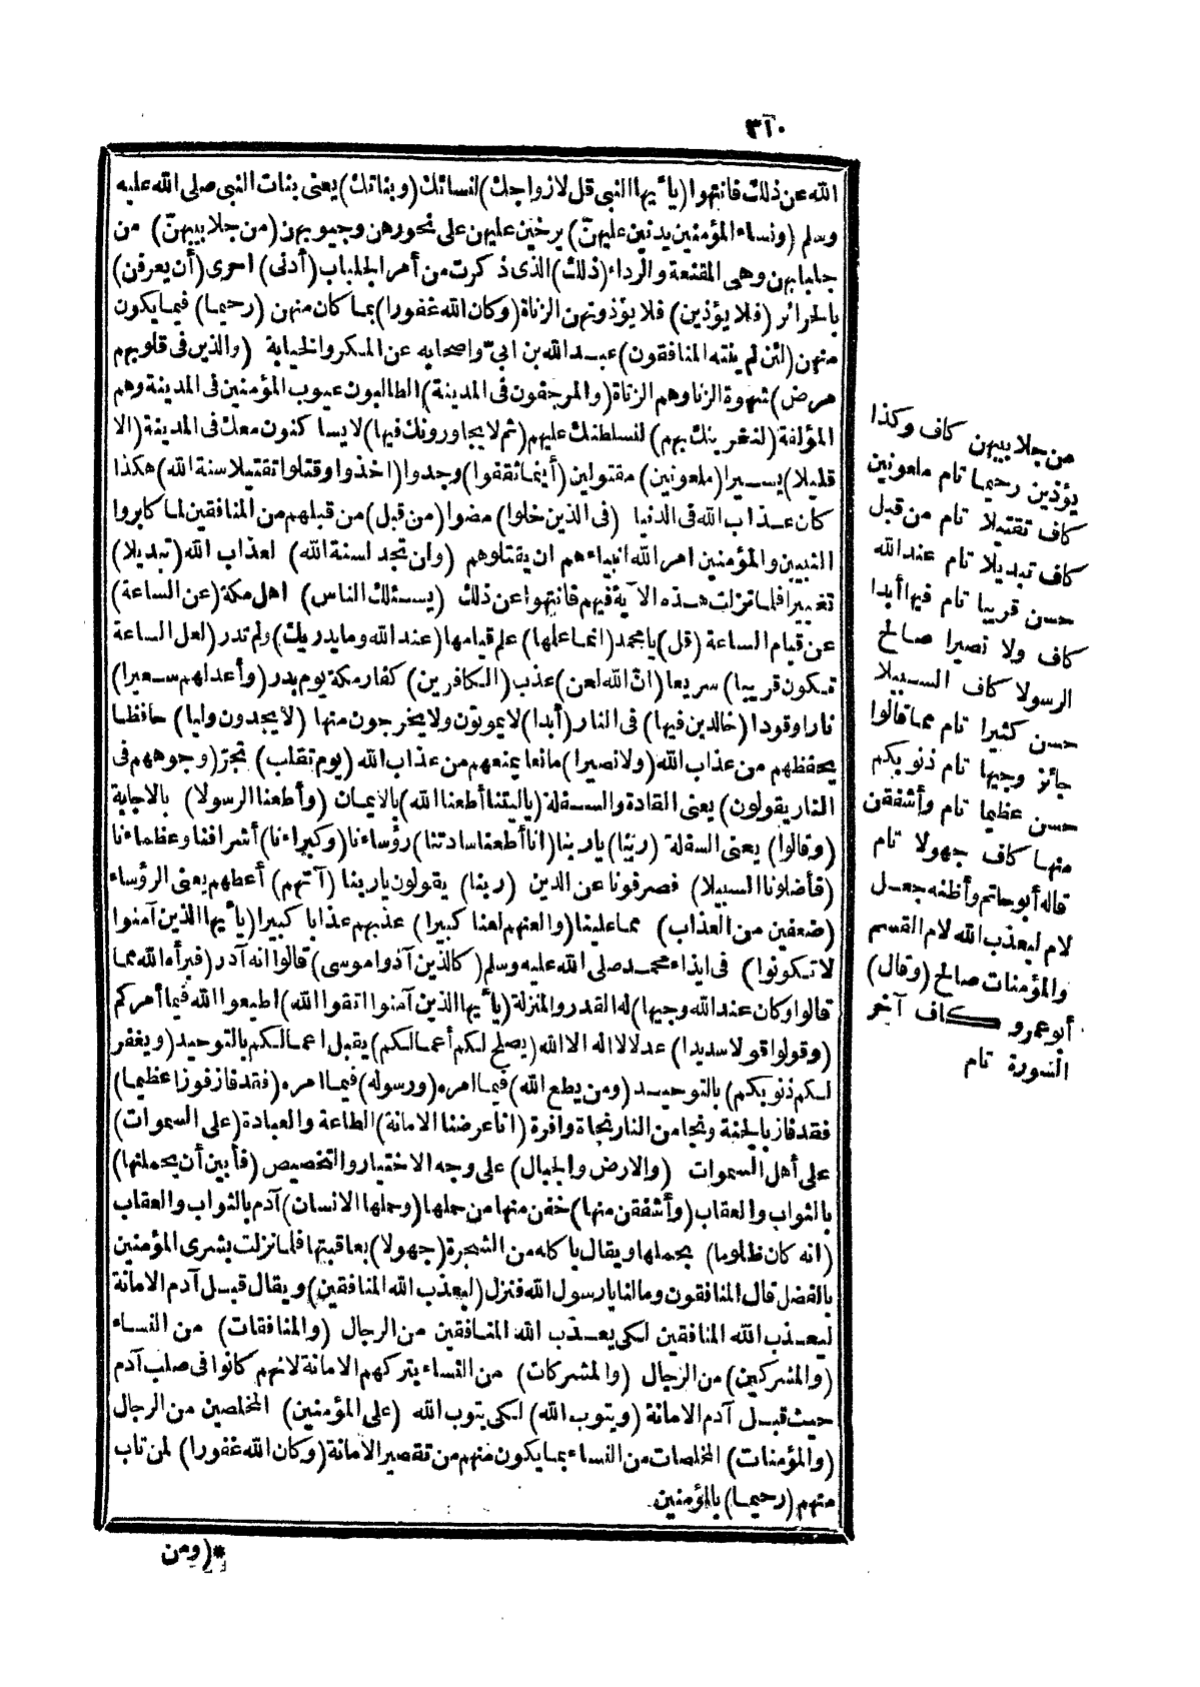 ٣٦٠
الله عن ذلك فانتهوا (يا أيها النبى قل لازواجك) لنسائك (وبناتك) يعنى بنات النبى صلى الله عليه
وسلم (ونساء المؤمنين يدنين عليهنّ) يرخين عليهن على نحورهن وجيوبهن (من جلابيبهنّ) من
جلبابهن وهى المقنعة والرداء (ذلك) الذى ذكرت من أمر الجلباب (أدنى) احرى (أن يعرفن)
بالحرائر (فلا يؤذين) فلا يؤذونهن الزناة (وكان الله غفورا) بما كان منهن (رحيما) فيما يكون
منهن (لئن لم ينته المنافقون) عبد الله بن ابىّ واصحابه عن المكر والخيانة (والذين فى قلوبهم
مرض) شهوة الزنا وهم الزناة (والمرجفون فى المدينة) الطالبون عيوب المؤمنين فى المدينة وهم
المؤلفة (لنغرينك بهم) لنسلطنك عليهم (ثم لا يجاورونك فيها) لا يساكنون معك فى المدينة (الا
قليلا) يسيرا (ملعونين) مقتولين (أينما ثقفوا) وجدوا (اخذوا وقتلوا تقتيلا سنة الله) هكذا
كان عذاب الله فى الدنيا (فى الذين خلوا) مضوا (من قبل) من قبلهم من المنافقين لما كابروا
النبيين والمؤمنين امر الله انبياءهم ان يقتلوهم (ولن تجد لسنة الله) لعذاب الله (تبديلا)
تغييرا فلما نزلت هذه الآية فيهم فانتهوا عن ذلك (يسئلك الناس) اهل مكة (عن الساعة)
عن قيام الساعة (قل) يا محمد (انما علمها) علم قيامها (عند الله وما يدريك) ولم تدر (لعل الساعة
تكون قريبا) سريعا (انّ الله لعن) عذب (الكافرين) كفار مكة يوم بدر (وأعد لهم سعيرا)
نارا وقودا (خالدين فيها) فى النار (أبدا) لا يموتون ولا يخرجون منها (لا يجدون وليا) حافظا
يحفظهم من عذاب الله (ولا نصيرا) مانعا يمنعهم من عذاب الله (يوم تقلب) تجرّ (وجوههم فى
النار يقولون) يعنى القادة والسفلة (ياليتنا أطعنا الله) بالايمان (وأطعنا الرسولا) بالاجابة
(وقالوا) يعنى السفلة (ربنا) ياربنا (انا أطعنا سادتنا) رؤساءنا (وكبراءنا) أشرافنا وعظماءنا
(فأضلونا السبيلا) فصرفونا عن الدين (ربنا) يقولون ياربنا (آتهم) أعطهم يعنى الرؤساء
(ضعفين من العذاب) مما علينا (والعنهم لعنا كبيرا) عذبهم عذابا كبيرا (يا أيها الذين آمنوا
لا تكونوا) فى ايذاء محمد صلى الله عليه وسلم (كالذين آذوا موسى) قالوا انه آدر (فبرأه الله مما
قالوا وكان عند الله وجيها) له القدر والمنزلة (يا أيها الذين آمنوا اتقوا الله) اطيعوا الله فيما أمركم
(وقولوا قولا سديدا) عدلا لا اله الا الله (يصلح لكم أعمالكم) يقبل اعمالكم بالتوحيد (ويغفر
لكم ذنوبكم) بالتوحيد (ومن يطع الله) فيما امره (ورسوله) فيما امره (فقد فاز فوزا عظيما)
فقد فاز بالجنة ونجا من النار نجاة وافرة (انا عرضنا الامانة) الطاعة والعبادة (على السموات)
على أهل السموات (والارض والجبال) على وجه الاختيار والتخصيص (فأبين أن يحملنها)
بالثواب والعقاب (وأشفقن منها) خفن منها من حملها (وحملها الانسان) آدم بالثواب والعقاب
(انه كان ظلوما) بحملها ويقال باكله من الشجرة (جهولا) بعاقبتها فلما نزلت بشرى المؤمنين
بالفضل قال المنافقون وما لنا يا رسول الله فنزل (ليعذب الله المنافقين) ويقال قبل آدم الامانة
ليعذب الله المنافقين لكى يعذب الله المنافقين من الرجال (والمنافقات) من النساء
(والمشركين) من الرجال (والمشركات) من النساء بتركهم الامانة لانهم كانوا فى صلب آدم
حيث قبل آدم الامانة (ويتوب الله) لكى يتوب الله (على المؤمنين) المخلصين من الرجال
(والمؤمنات) المخلصات من النساء بما يكون منهم من تقصير الامانة (وكان الله غفورا) لمن تاب
منهم (رحيما) بالمؤمنين
من جلابيبهن كاف وكذا
يؤذين رحيما تام ملعونين
كاف تقتيلا تام من قبل
كاف تبديلا تام عند الله
حسن قريبا تام فيها أبدا
كاف ولا نصيرا صالح
الرسولا كاف السبيلا
حسن كثيرا تام مما قالوا
جائز وجيها تام ذنوبكم
حسن عظيما تام وأشفقن
منها كاف جهولا تام
قاله أبو حاتم وأظنه جعل
لام ليعذب الله لام القسم
والمؤمنات صالح (وقال)
أبو عمرو كاف آخر
السورة تام
*(ومن